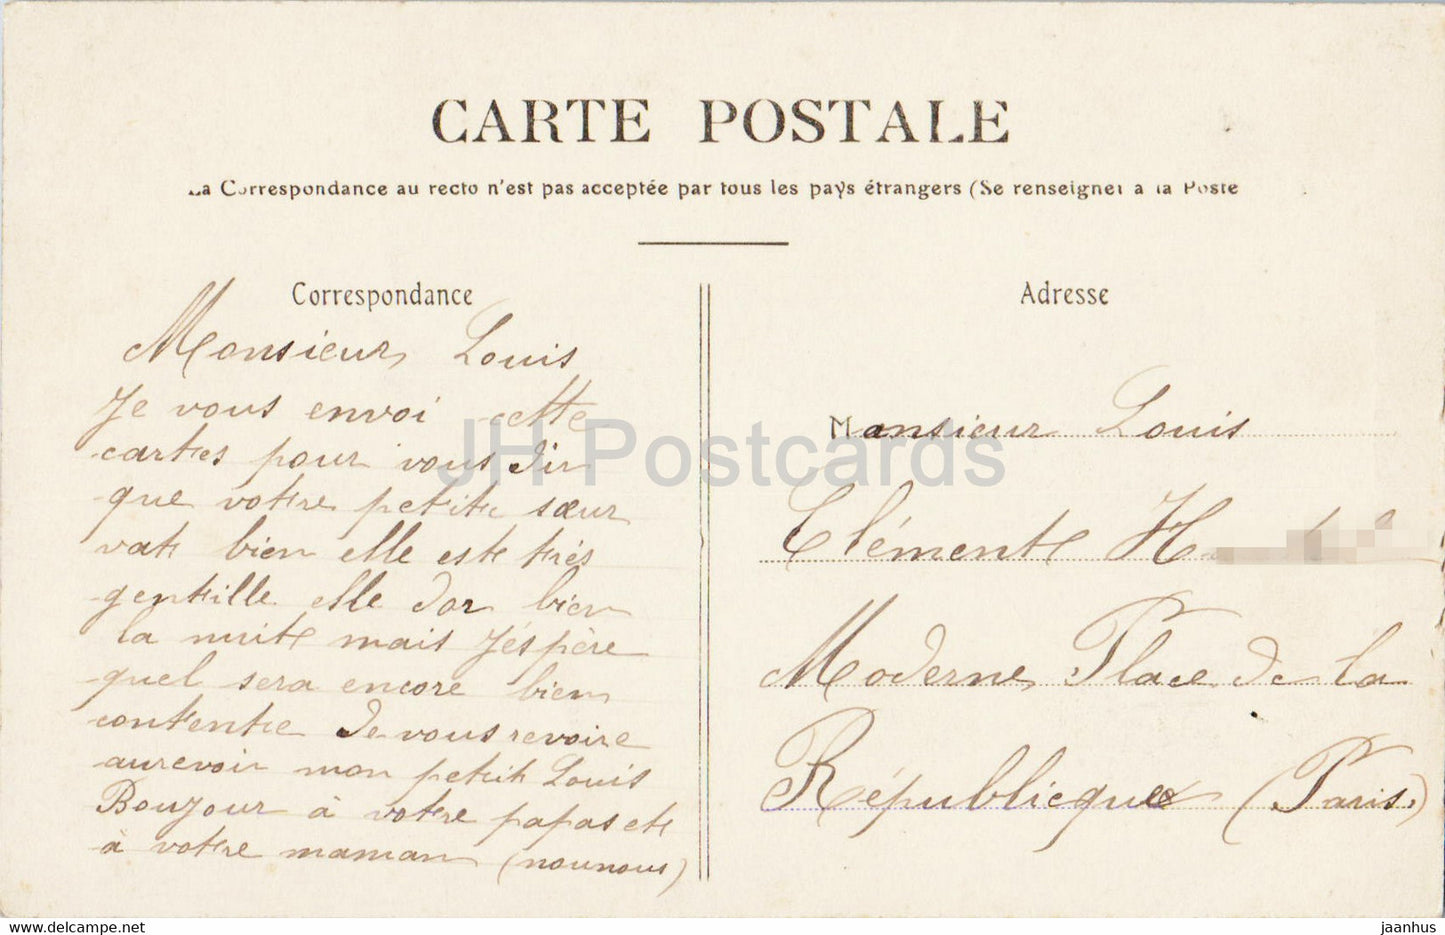 CARTE POSTALE
La Correspondance au recto n'est pas acceptée par tous les pays étrangers (Se renseigner à la Poste
Correspondance
Monsieur Louis
Je vous envoi cette
cartes pour vous dir
que votre petite sœur
vat bien elle est très
gentille elle dor bien
la nuit mais J'éspère
quel sera encore bien
contente de vous revoire
aurevoir mon petit Louis
Boujour à votre papas et
à votre maman (nounous)
Adresse
Monsieur Louis
Clémente H
Moderne Place de la
Républicque (Paris)
JH Postcards
https://www.delcampe.net
jaanhus